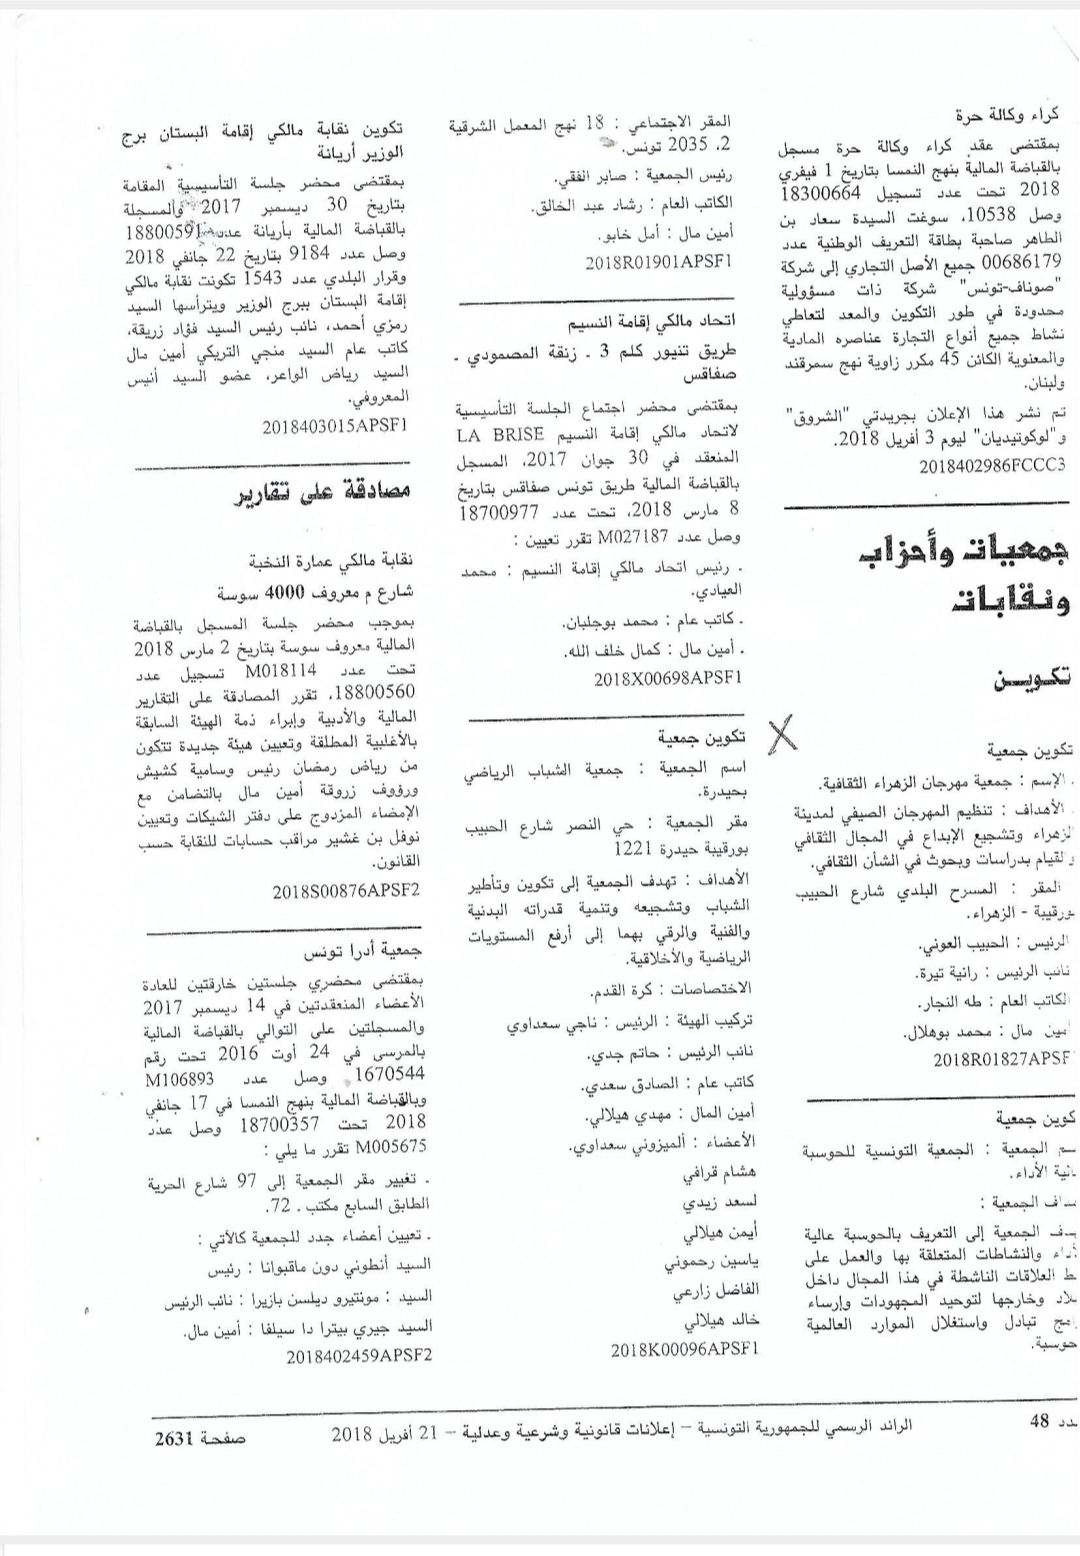 كراء وكالة حرة
بمقتضى عقد كراء وكالة حرة مسجل
بالقباضة المالية بنهج النمسا بتاريخ 1 فيفري
2018 تحت عدد تسجيل 18300664
وصل 10538، سوغت السيدة سعاد بن
الطاهر صاحبة بطاقة التعريف الوطنية عدد
00686179 جميع الأصل التجاري إلى شركة
"صوناف-تونس" شركة ذات مسؤولية
محدودة في طور التكوين والمعد لتعاطي
نشاط جميع أنواع التجارة عناصره المادية
والمعنوية الكائن 45 مكرر زاوية نهج سمرقند
ولبنان.
تم نشر هذا الإعلان بجريدتي "الشروق"
و"لوكوتيديان" ليوم 3 أفريل 2018.
2018402986FCCC3
جمعيات وأحزاب
ونقابات
تكويـن
تكوين جمعية
. الإسم : جمعية مهرجان الزهراء الثقافية.
. الأهداف : تنظيم المهرجان الصيفي لمدينة
لزهراء وتشجيع الإبداع في المجال الثقافي
والقيام بدراسات وبحوث في الشأن الثقافي.
المقر : المسرح البلدي شارع الحبيب
ورقيبة - الزهراء.
الرئيس : الحبيب العوني.
نائب الرئيس : رانية تيرة.
لكاتب العام : طه النجار.
مين مال : محمد بوهلال.
2018R01827APSF
كوين جمعية
سم الجمعية : الجمعية التونسية للحوسبة
انية الأداء.
ـداف الجمعية :
ـدف الجمعية إلى التعريف بالحوسبة عالية
أداء والنشاطات المتعلقة بها والعمل على
ـط العلاقات الناشطة في هذا المجال داخل
ـلاد وخارجها لتوحيد المجهودات وإرساء
ـامج تبادل واستغلال الموارد العالمية
حوسبة.
المقر الاجتماعي : 18 نهج المعمل الشرقية
2، 2035 تونس.
رئيس الجمعية : صابر الفقي.
الكاتب العام : رشاد عبد الخالق.
أمين مال : أمل خابو.
2018R01901APSF1
اتحاد مالكي إقامة النسيم
طريق تنيور كلم 3 . زنقة المصمودي .
صفاقس
بمقتضى محضر اجتماع الجلسة التأسيسية
لاتحاد مالكي إقامة النسيم LA BRISE
المنعقد في 30 جوان 2017، المسجل
بالقباضة المالية طريق تونس صفاقس بتاريخ
8 مارس 2018، تحت عدد 18700977
وصل عدد M027187 تقرر تعيين :
. رئيس اتحاد مالكي إقامة النسيم : محمد
العيادي.
. كاتب عام : محمد بوجلبان.
. أمين مال : كمال خلف الله.
2018X00698APSF1
تكوين جمعية
اسم الجمعية : جمعية الشباب الرياضي
بحيدرة.
مقر الجمعية : حي النصر شارع الحبيب
بورقيبة حيدرة 1221
الأهداف : تهدف الجمعية إلى تكوين وتأطير
الشباب وتشجيعه وتنمية قدراته البدنية
والفنية والرقي بهما إلى أرفع المستويات
الرياضية والأخلاقية.
الاختصاصات : كرة القدم.
تركيب الهيئة : الرئيس : ناجي سعداوي
نائب الرئيس : حاتم جدي.
كاتب عام : الصادق سعدي.
أمين المال : مهدي هيلالي.
الأعضاء : ألميزوني سعداوي.
هشام قرافي
لسعد زيدي
أيمن هيلالي
ياسين رحموني
الفاضل زارعي
خالد هيلالي
2018K00096APSF1
تكوين نقابة مالكي إقامة البستان برج
الوزير أريانة
بمقتضى محضر جلسة التأسيسية المقامة
بتاريخ 30 ديسمبر 2017 والمسجلة
بالقباضة المالية بأريانة عدد 18800591
وصل عدد 9184 بتاريخ 22 جانفي 2018
وقرار البلدي عدد 1543 تكونت نقابة مالكي
إقامة البستان ببرج الوزير ويترأسها السيد
رمزي أحمد، نائب رئيس السيد فؤاد زريقة،
كاتب عام السيد منجي التريكي أمين مال
السيد رياض الواعر، عضو السيد أنيس
المعروفي.
2018403015APSF1
مصادقة على تقارير
نقابة مالكي عمارة النخبة
شارع م معروف 4000 سوسة
بموجب محضر جلسة المسجل بالقباضة
المالية معروف سوسة بتاريخ 2 مارس 2018
تحت عدد M018114 تسجيل عدد
18800560، تقرر المصادقة على التقارير
المالية والأدبية وإبراء ذمة الهيئة السابقة
بالأغلبية المطلقة وتعيين هيئة جديدة تتكون
من رياض رمضان رئيس وسامية كشيش
ورؤوف زروقة أمين مال بالتضامن مع
الإمضاء المزدوج على دفتر الشيكات وتعيين
نوفل بن غشير مراقب حسابات للنقابة حسب
القانون.
2018S00876APSF2
جمعية أدرا تونس
بمقتضى محضري جلستين خارقتين للعادة
الأعضاء المنعقدتين في 14 ديسمبر 2017
والمسجلتين على التوالي بالقباضة المالية
بالمرسى في 24 أوت 2016 تحت رقم
1670544 وصل عدد M106893
وبالقباضة المالية بنهج النمسا في 17 جانفي
2018 تحت 18700357 وصل عدد
M005675 تقرر ما يلي :
. تغيير مقر الجمعية إلى 97 شارع الحرية
الطابق السابع مكتب . 72.
. تعيين أعضاء جدد للجمعية كالآتي :
السيد أنطوني دون ماقبوانا : رئيس
السيد : مونتيرو ديلسن بازيرا : نائب الرئيس
السيد جيري بيترا دا سيلفا : أمين مال.
2018402459APSF2
ـدد 48
الرائد الرسمي للجمهورية التونسية – إعلانات قانونية وشرعية وعدلية – 21 أفريل 2018
صفحة 2631